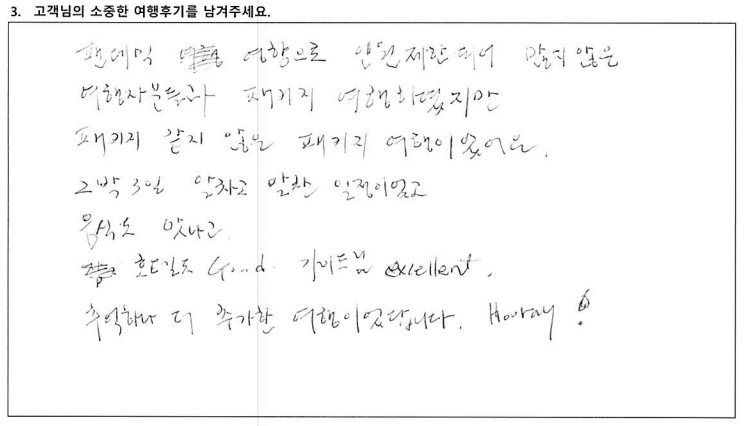 3. 고객님의 소중한 여행후기를 남겨주세요.
팬데믹 영향으로 인원제한되어 많지 않은
여행자분들과 패키지 여행하였지만
패키지 같지 않은 패키지 여행이었어요.
2박3일 알차고 알찬 일정이었고
음식도 맛나고
호텔도 Good. 가이드님 exellent.
추억하나 더 추가한 여행이었답니다. Hooray!